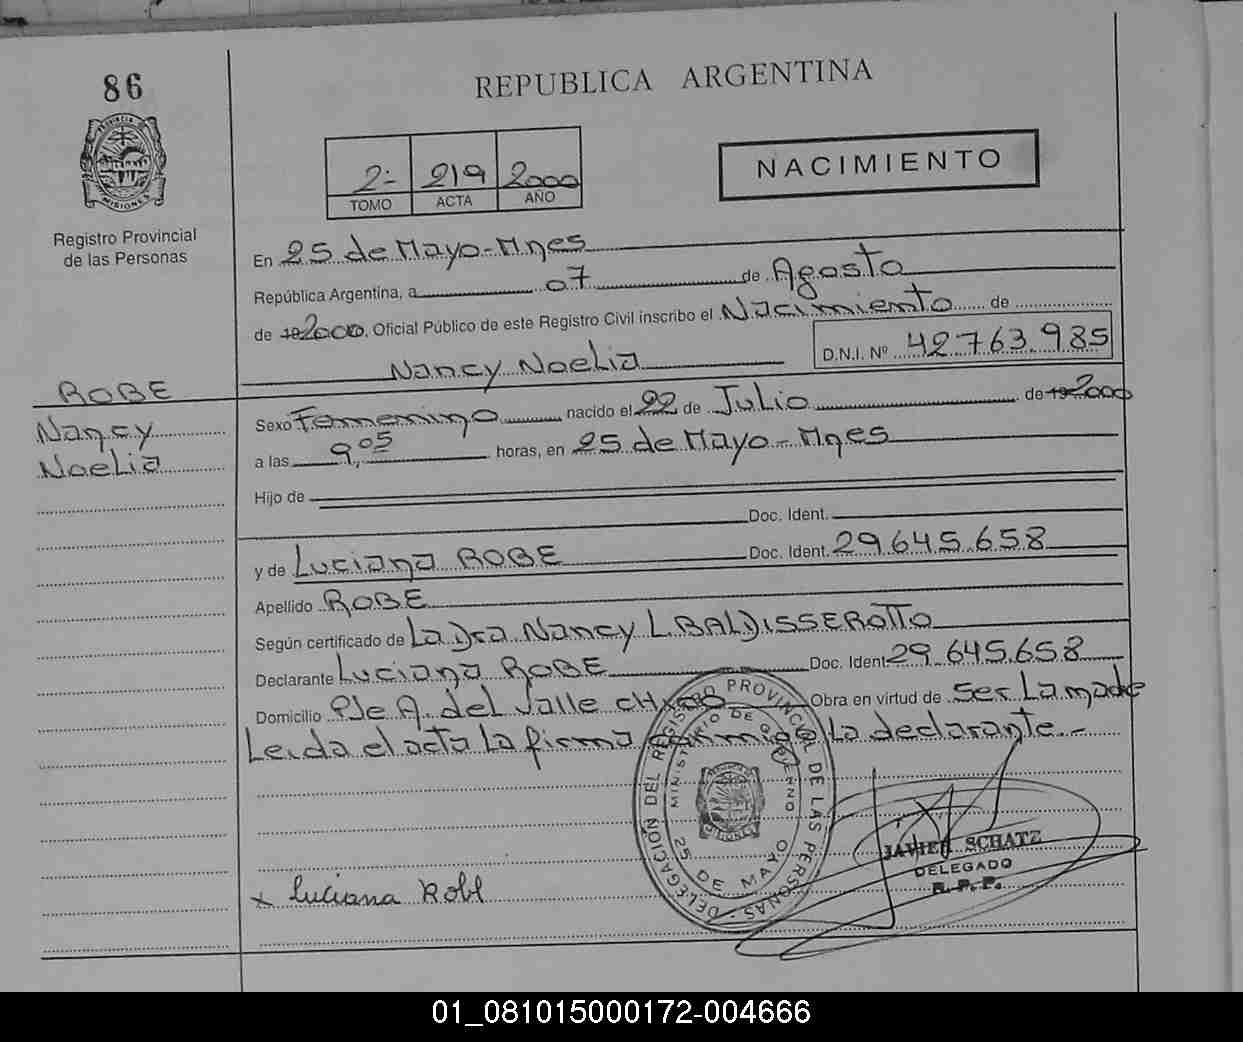 86
REPUBLICA ARGENTINA
PROVINCIA DE MISIONES
2- 219 2000
TOMO ACTA AÑO
NACIMIENTO
Registro Provincial
de las Personas
En 25 de Mayo-Mnes
República Argentina, a 07 de Agosto
de 192000. Oficial Público de este Registro Civil inscribo el Nacimiento de
Nancy Noelia D.N.I. Nº 42763985
ROBE
Nancy
Noelia
Sexo Femenino nacido el 22 de Julio de 192000
a las 9,05 horas, en 25 de Mayo-Mnes
Hijo de
Doc. Ident.
y de Luciana ROBE Doc. Ident. 29.645.658
Apellido ROBE
Según certificado de La Dra Nancy L. BALDISSEROTTO
Declarante Luciana ROBE Doc. Ident 29.645.658
Domicilio Pje A. del Valle Obra en virtud de Ser La madre
Leida el acta La firma conmigo La declarante.-
DELEGACIÓN DEL REGISTRO PROVINCIAL DE LAS PERSONAS
MINISTERIO DE GOBIERNO
25 DE MAYO
JAVIER SCHATZ
DELEGADO
R. P. P.
x Luciana Robe
01_081015000172-004666